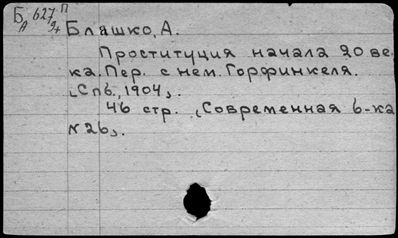 Б 627 П
А 94
Блашко, А.
Проституция начала 20 ве-
ка. Пер. с нем. Горфинкеля.
[Спб., 1904].
46 стр. [Современная б-ка
№ 26].